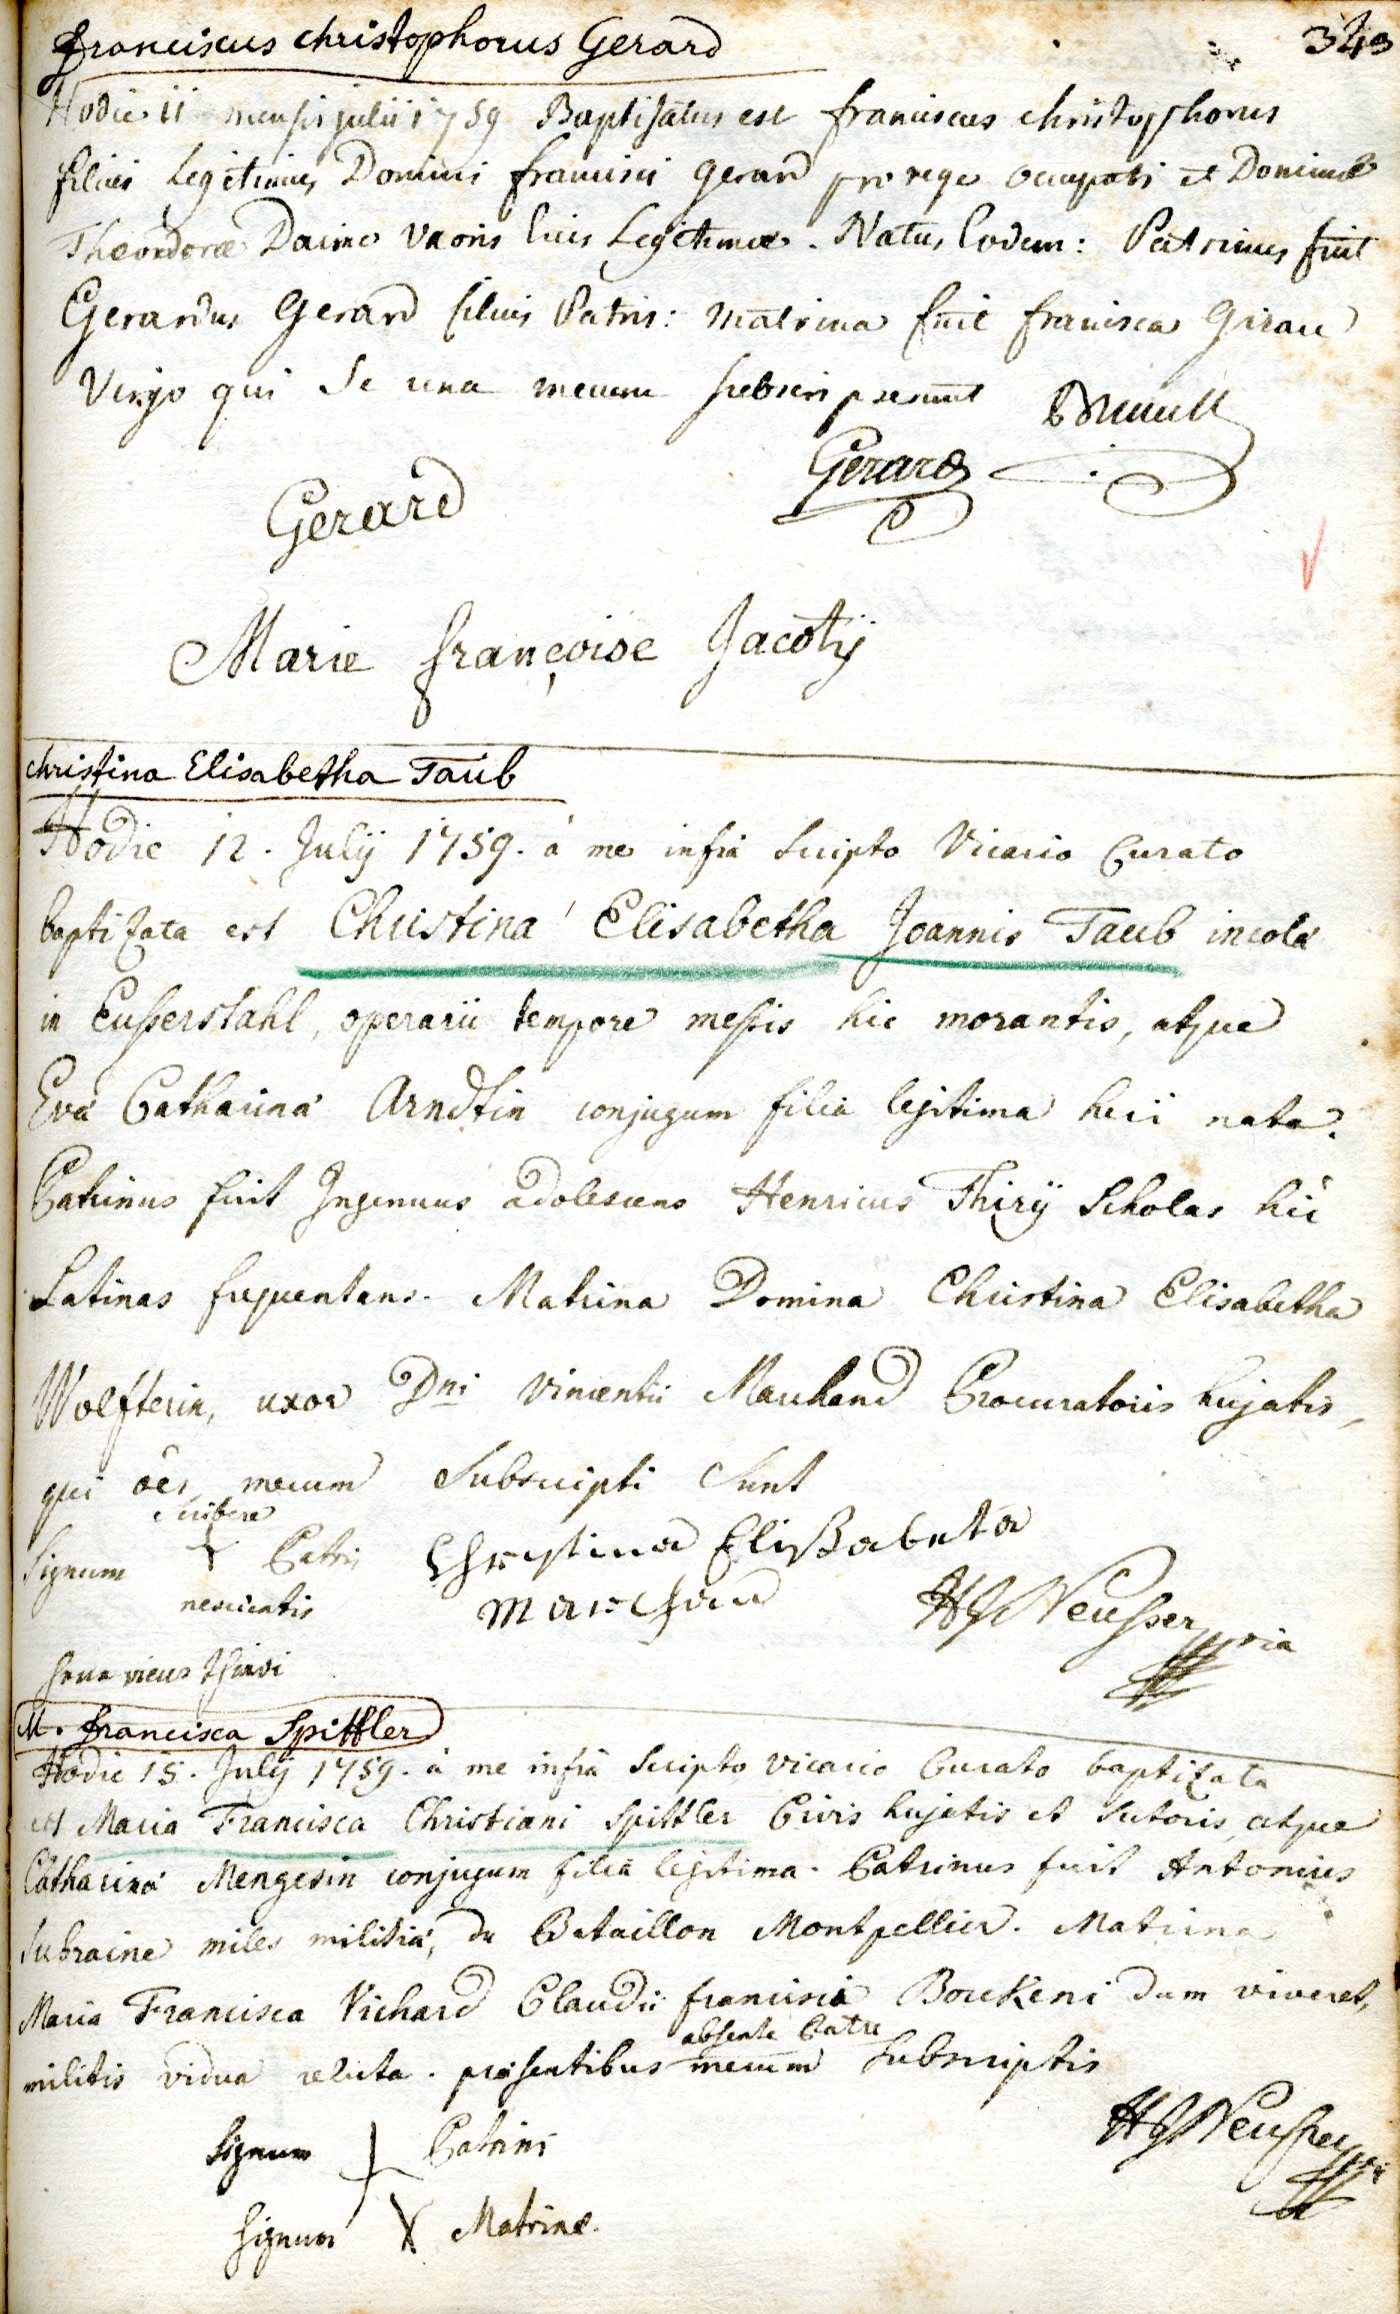 franciscus christophorus Gerard
343
Hodie 11 mensis julii 1759 Baptisatus est franciscus christophorus
filius Legitimus Domini francisci gerard pro rege occupati et Dominæ
Theordoræ Daime Uxoris Eius Legitimæ. Natus Eodem: Patrinus fuit
Gerardus Gerard filius Patris: matrina fuit francisca Girau
Virgo qui se una mecum subscripserunt
Gerard
Gerard
Marie françoise Jacotÿ
christina Elisabetha Taub
Hodie 12. Julÿ 1759. à me infrà Scripto Vicario Curato
baptizata est Christina Elisabetha Joannis Taub incolæ
in Eusserstahl, operarii tempore messis hic morantis, atque
Eva Catharina Arndtin conjugum filia legitima heri nata.
Patrinus fuit Ingenuus adolescens Henricus Thirÿ Scholas hic
Latinas frequentans. Matrina Domina Christina Elisabetha
Wolfferin, uxor Dni Vincentii Marchand Procuratoris hujatis,
qui oes mecum Subscripti Sunt
Scribere
Signum Patris Christina Elißabeta
nescientis Marchand HJ Neusser
M. francisca Spittler
Hodie 15. Julÿ 1759. à me infrà Scripto vicario Curato baptizata
est Maria Francisca Christiani Spittler Civis hujatis et Sutoris, atque
Catharina Mengesin conjugum filia legitima. Patrinus fuit Antonius
Subraine miles militiæ, du Bataillon Montpellier. Matrina
Maria Francisca Richard Claudii francisci Bouckeni dum viveret,
militis vidua relicta. præsentibus mecum Subscriptis
absente Patre
Signum Patrini
HJ Neusser
Signum X Matrinæ.